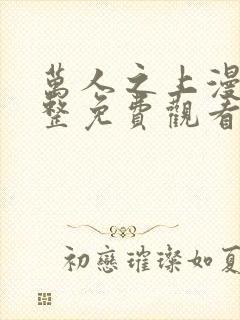 萬人之上漫
整免費觀看
初戀璀璨如夏